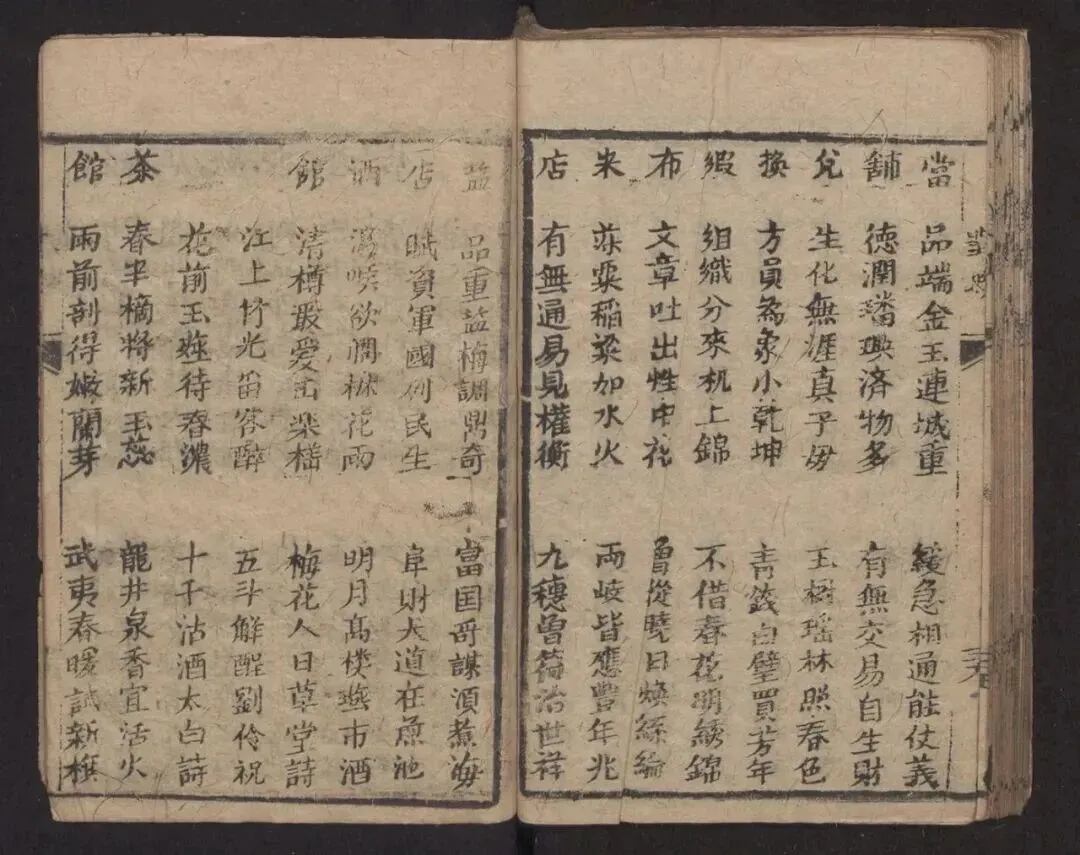 當 品端金玉連城重 緩急相通能仗義
舖 德潤璠璵済物多 有無交易自生財
兌 生化無涯真子母 玉樹瑶林照春色
換 方員為象小乾坤 青錢白璧買芳年
緞 組織分來机上錦 不借春花明綉錦
布 文章吐出性中花 曾從曉日焕絲綸
米 菽粟稻梁如水火 兩岐皆應豐年兆
店 有無通易見權衡 九穗曾符治世祥
盐 品重盐梅調鼎奇 富国哥謀湏煮海
店 賦資軍國利民生 阜財大道在魚池
酒 欲 花雨 明月高楼 市酒
館 清樽最愛 梅花人日草堂詩
江上竹光 醉 五斗解酲劉伶祝
花前玉 待春濃 十千沽酒太白詩
茶 春半摘將新玉蕊 龍井泉香宜活火
館 雨前剖得嫩蘭芽 武夷春暖試新旗